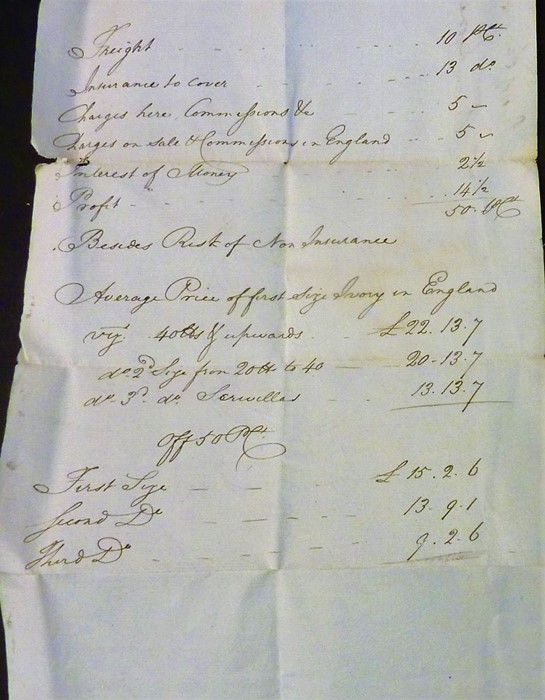 Freight - - - - - 10 PCt.
Insurance to cover - - - - 13 do
Charges here, Commissions &c - - - 5 ~
Charges on Sale & Commissions in England - - 5 ~
Interest of Money - - - 2½
Profit - - - - 14½
50 PCt
Besides Risk of Non Insurance
Average Price of first Size Ivory in England
vizt. 40lbs & upwards - £22.13.7
do 2d Size from 20lb to 40 — 20.13.7
do 3d. do Scrivellas - 13.13.7
Off 50 PCt.
First Size - - - - £15.2.6
Second Do - - - - 13.9.1
Third Do - - - - 9.2.6